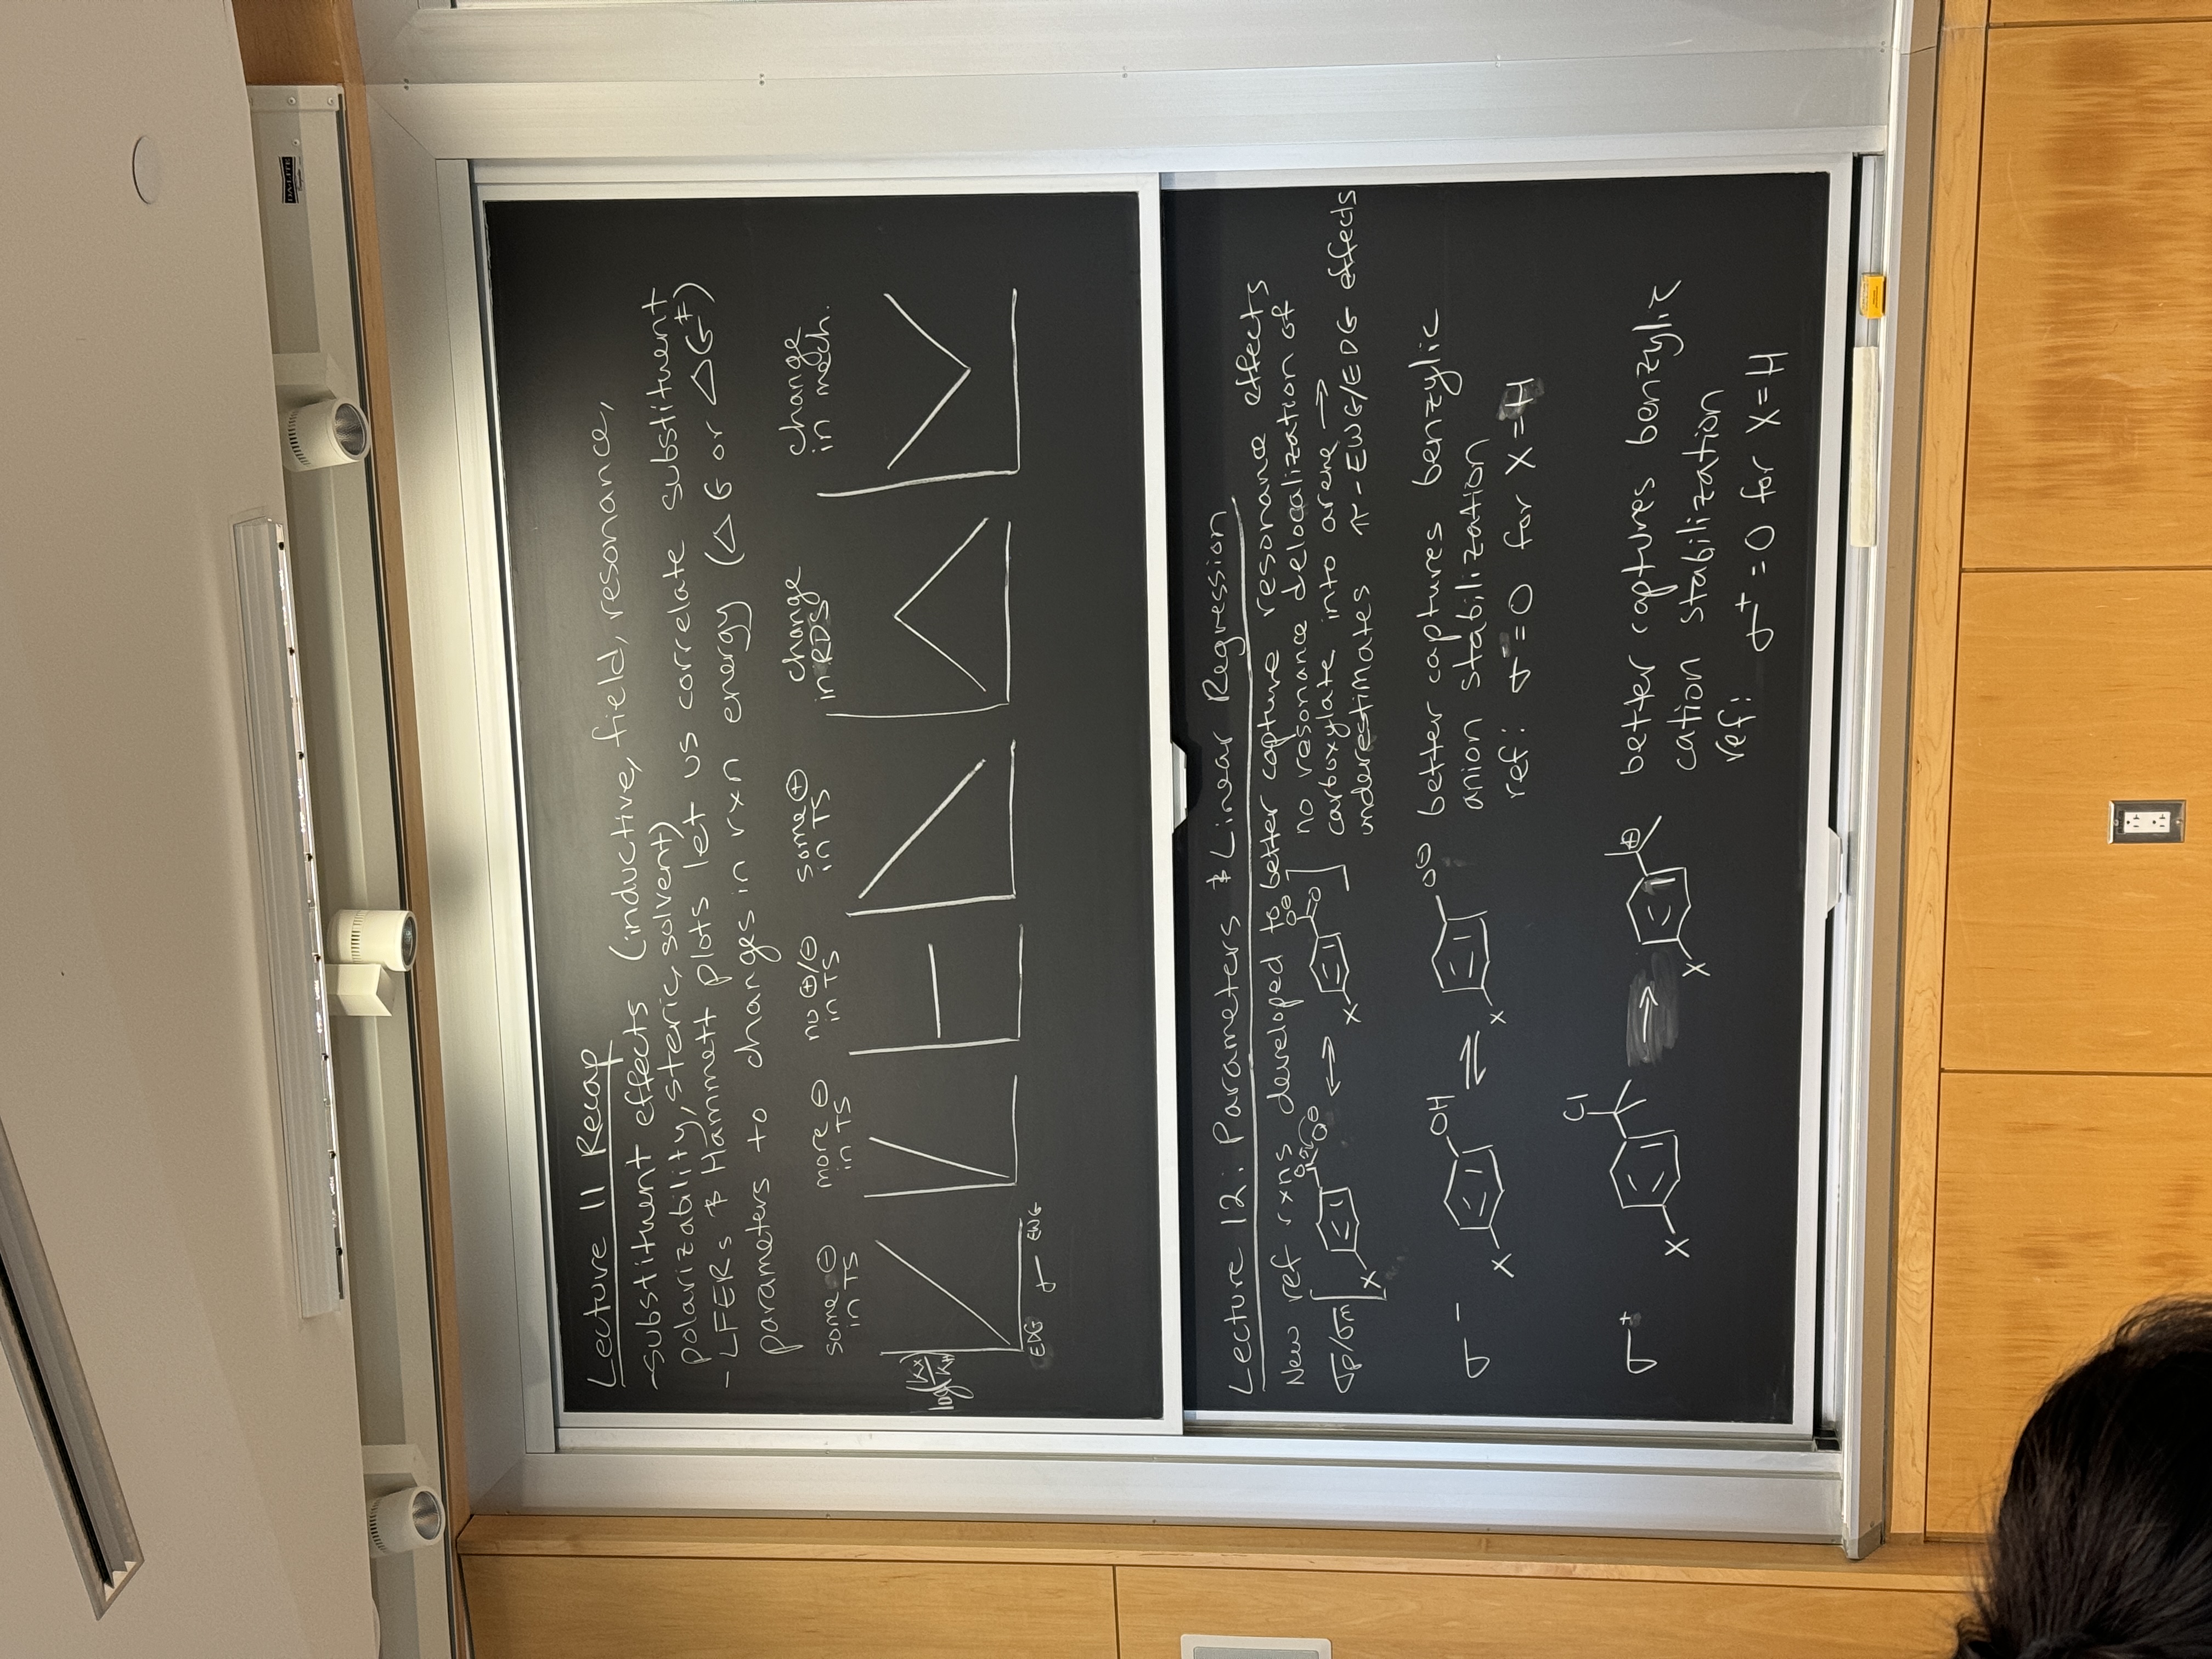 DA-LITE
Lecture 11 Recap
-substituent effects (inductive, field, resonance,
polarizability, steric, solvent)
- LFERs & Hammett plots let us correlate substituent
parameters to changes in rxn energy (△G or △G‡)
some ⊖
in TS
more ⊖
in TS
no ⊕/⊖
in TS
some ⊕
in TS
change
in RDS
change
in mech.
log(kx/kH)
EDG σ EWG
Lecture 12: Parameters & Linear Regression
New ref rxns developed to better capture resonance effects
σp/σm [ X O O⊖ ↔ X O⊖ O ]
no resonance delocalization of
carboxylate into arene →
underestimates π-EWG/EDG effects
σ⁻ X OH ⇌ X O⊖
better captures benzylic
anion stabilization
ref: σ⁻=0 for X=H
σ⁺ X Cl → X ⊕
better captures benzylic
cation stabilization
ref: σ⁺=0 for X=H